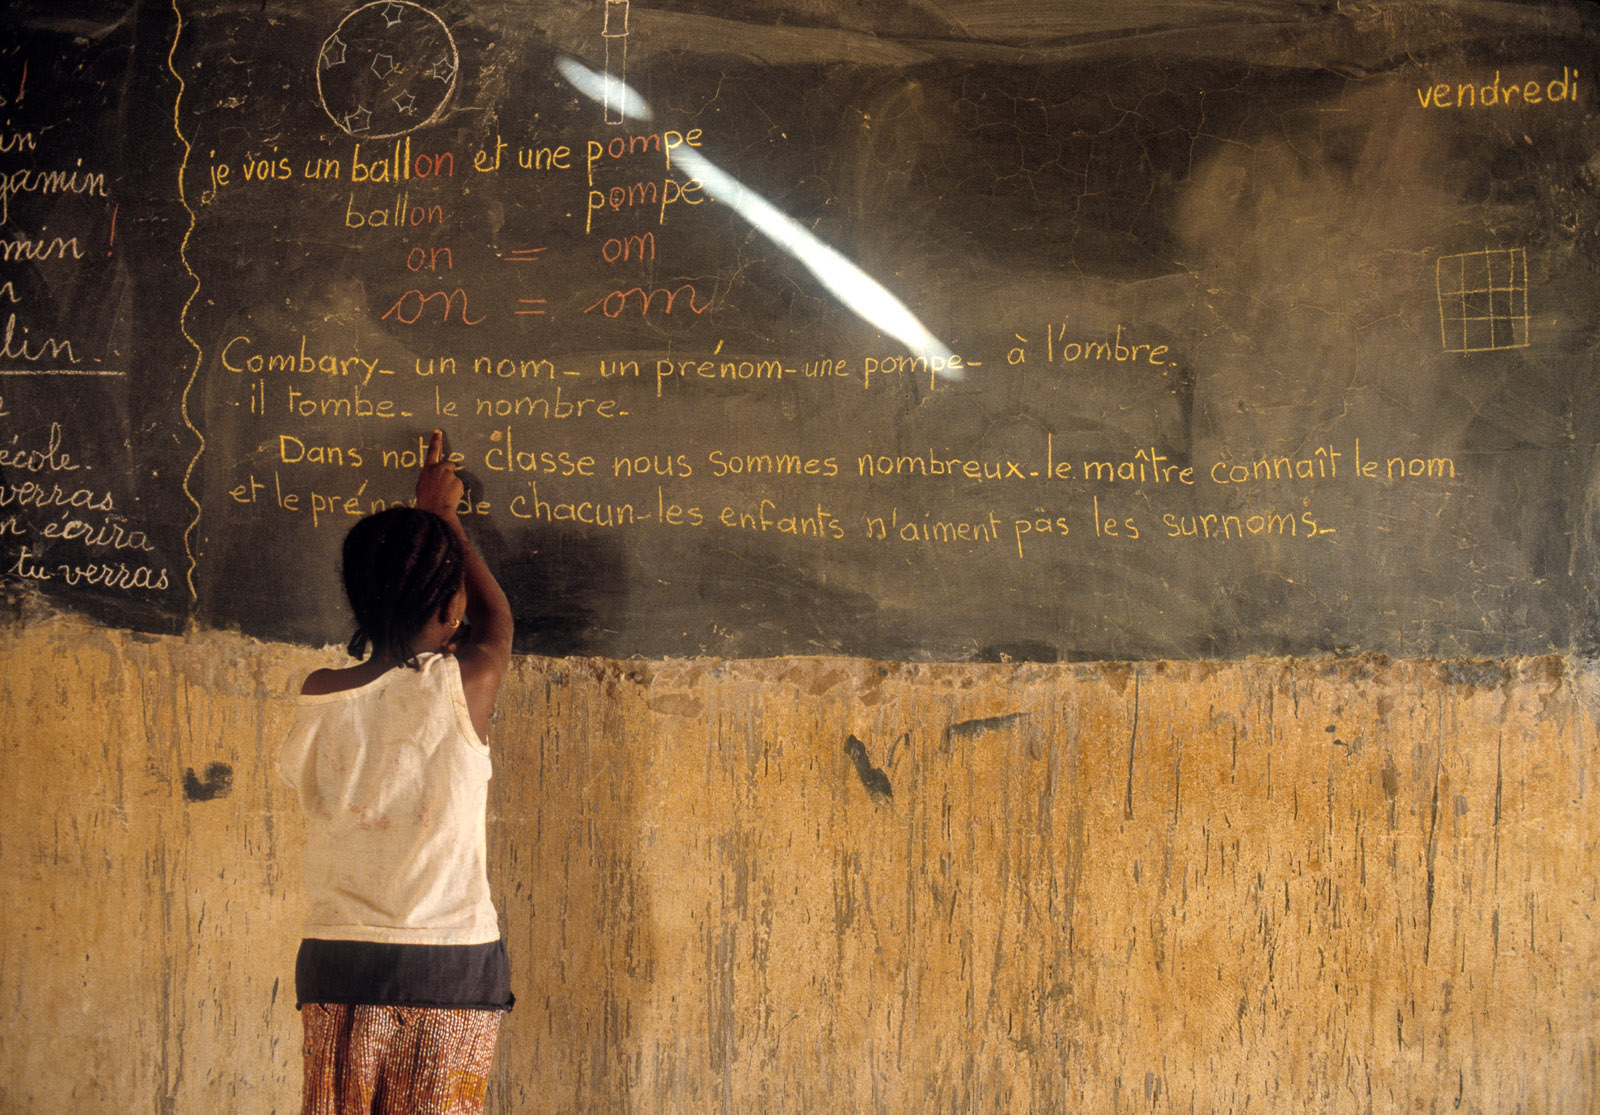 gamin
min !
lin..
école.
verras
écrira
tu verras
je vois un ballon et une pompe
ballon pompe
on = om
on = om
Combary - un nom - un prénom - une pompe - à l'ombre.
il tombe - le nombre.
Dans notre classe nous sommes nombreux - le maître connaît le nom
et le prénom de chacun - les enfants n'aiment pas les surnoms -
vendredi